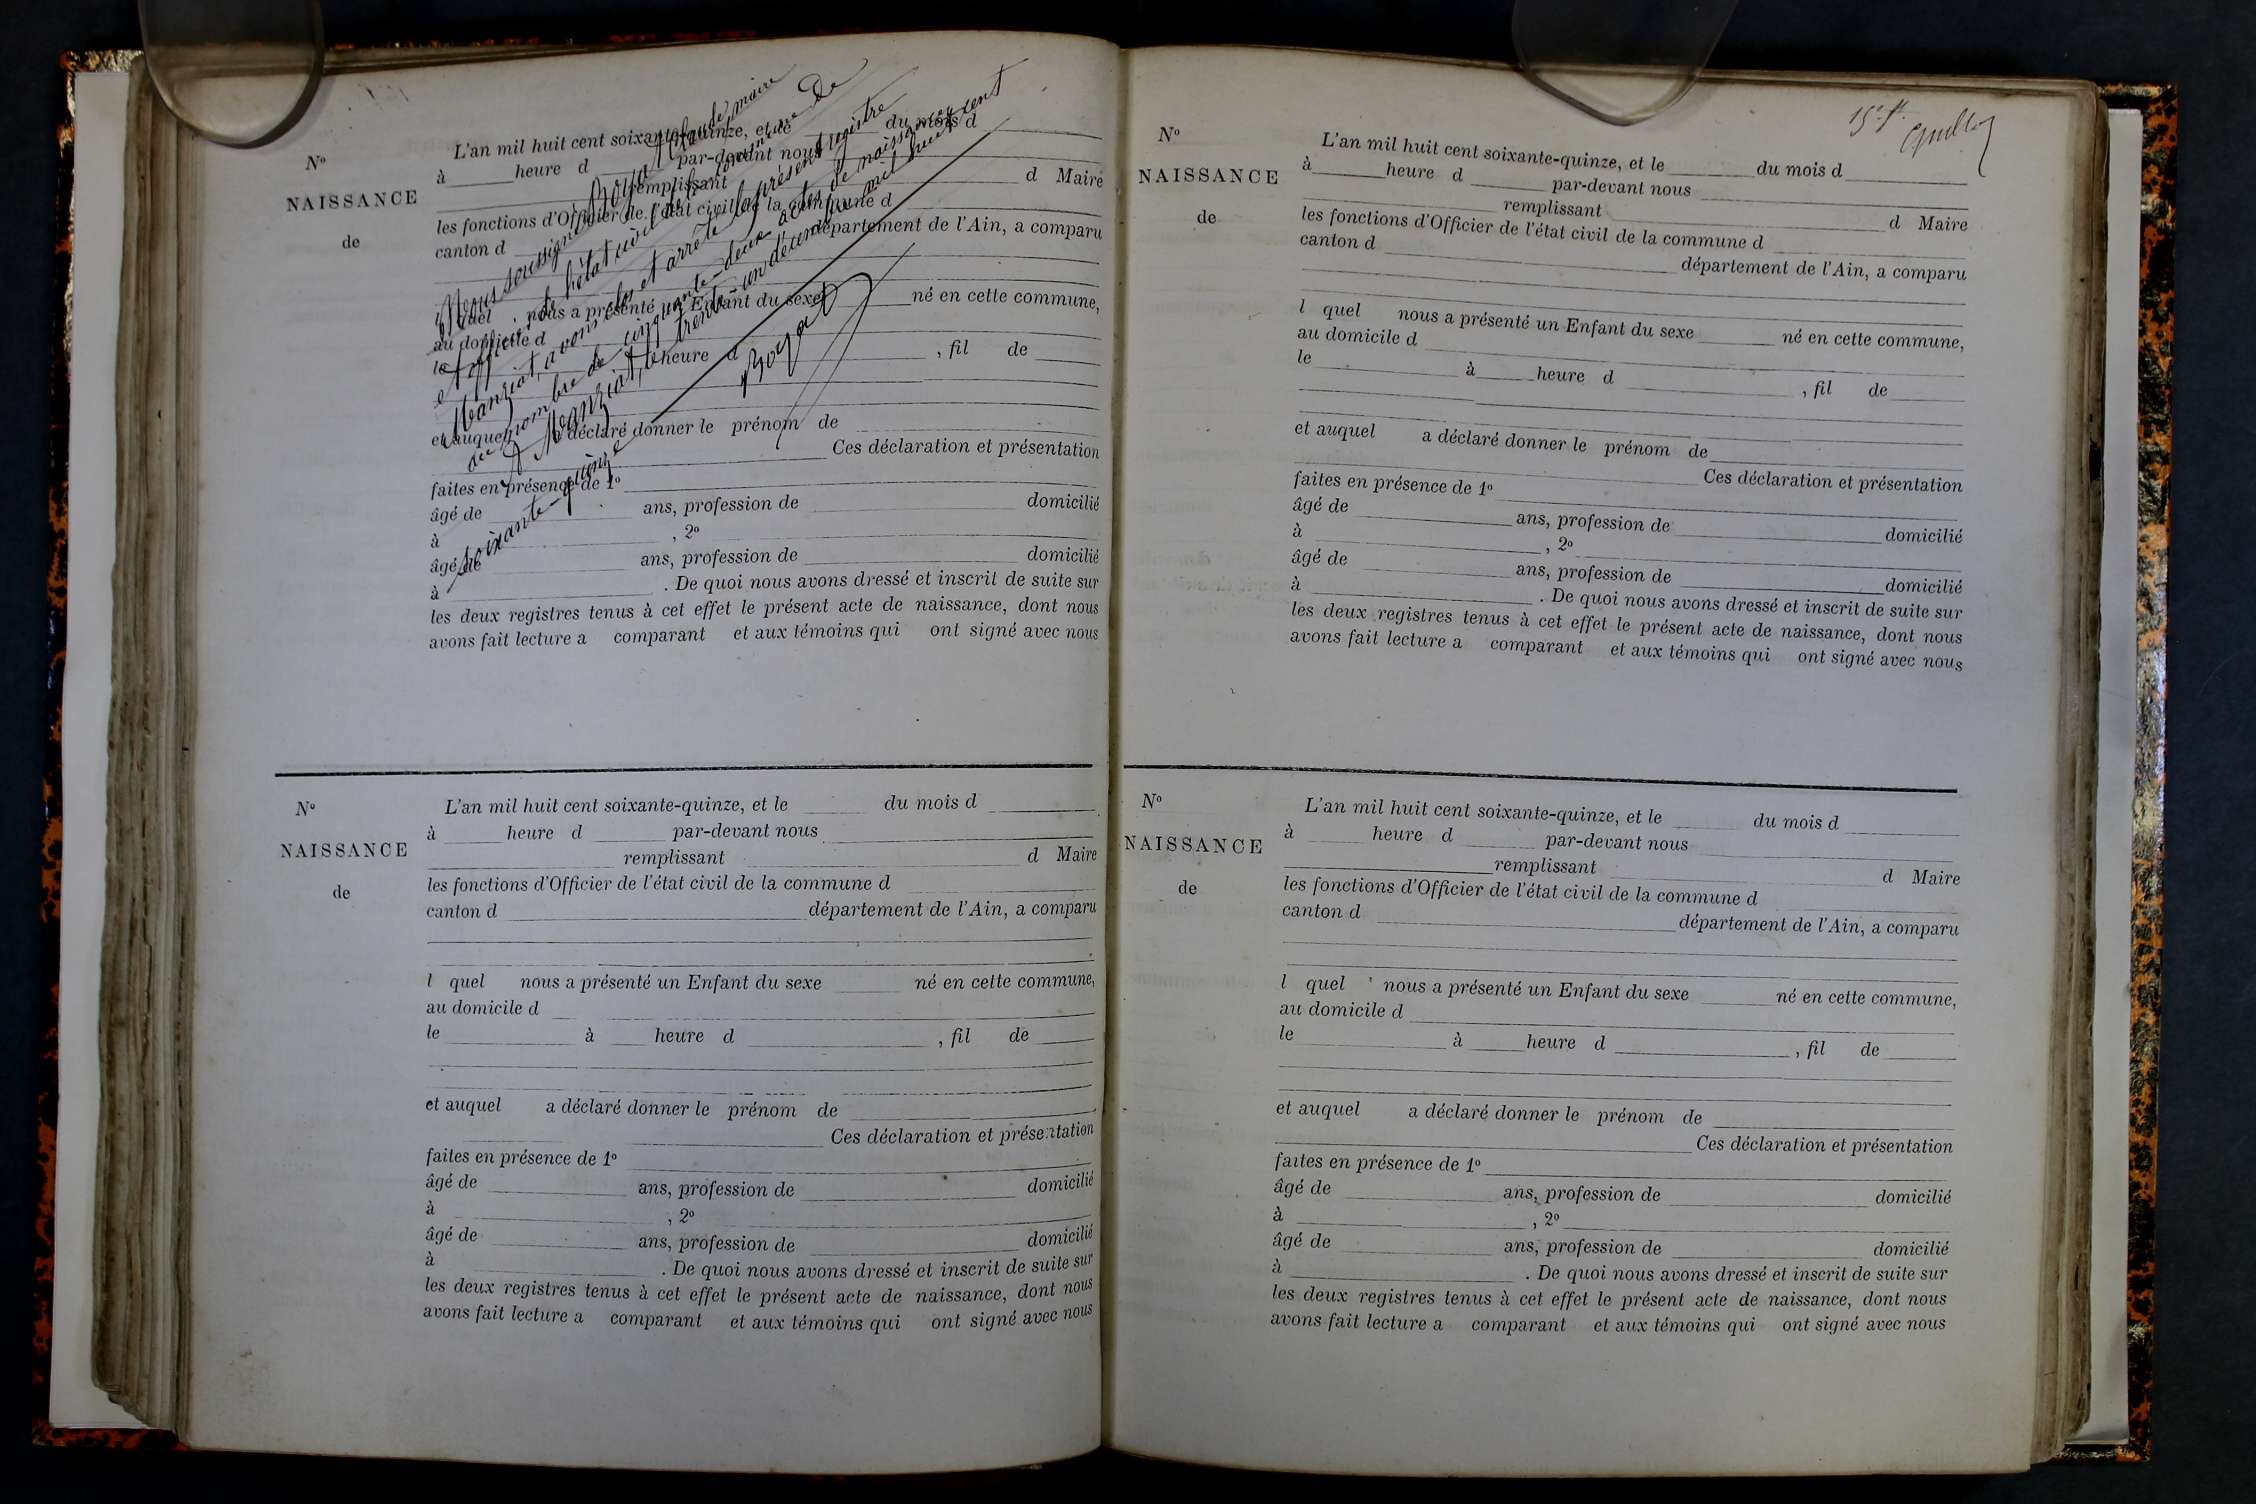 N°
NAISSANCE
de
L'an mil huit cent soixante-quinze, et le du mois d
à heure d par-devant nous
remplissant d Maire
les fonctions d'Officier de l'état civil de la commune d
canton d département de l'Ain, a comparu
l quel nous a présenté un Enfant du sexe né en cette commune,
au domicile d
le à heure d , fil de
et auquel a déclaré donner le prénom de
Ces déclaration et présentation
faites en présence de 1°
âgé de ans, profession de domicilié
à , 2°
âgé de ans, profession de domicilié
à . De quoi nous avons dressé et inscrit de suite sur
les deux registres tenus à cet effet le présent acte de naissance, dont nous
avons fait lecture a comparant et aux témoins qui ont signé avec nous
Nous soussigné, Boyat Claude, maire
et officier de l'état civil de la commune de
Manziat, avons clos et arrêté le présent registre
au nombre de cinquante-deux actes de naissances,
A Manziat, le trente-un décembre mil huit cent
soixante-quinze.
Boyat
N°
NAISSANCE
de
L'an mil huit cent soixante-quinze, et le du mois d
à heure d par-devant nous
remplissant d Maire
les fonctions d'Officier de l'état civil de la commune d
canton d département de l'Ain, a comparu
l quel nous a présenté un Enfant du sexe né en cette commune,
au domicile d
le à heure d , fil de
et auquel a déclaré donner le prénom de
Ces déclaration et présentation
faites en présence de 1°
âgé de ans, profession de domicilié
à , 2°
âgé de ans, profession de domicilié
à . De quoi nous avons dressé et inscrit de suite sur
les deux registres tenus à cet effet le présent acte de naissance, dont nous
avons fait lecture a comparant et aux témoins qui ont signé avec nous
15e ft
N°
NAISSANCE
de
L'an mil huit cent soixante-quinze, et le du mois d
à heure d par-devant nous
remplissant d Maire
les fonctions d'Officier de l'état civil de la commune d
canton d département de l'Ain, a comparu
l quel nous a présenté un Enfant du sexe né en cette commune,
au domicile d
le à heure d , fil de
et auquel a déclaré donner le prénom de
Ces déclaration et présentation
faites en présence de 1°
âgé de ans, profession de domicilié
à , 2°
âgé de ans, profession de domicilié
à . De quoi nous avons dressé et inscrit de suite sur
les deux registres tenus à cet effet le présent acte de naissance, dont nous
avons fait lecture a comparant et aux témoins qui ont signé avec nous
N°
NAISSANCE
de
L'an mil huit cent soixante-quinze, et le du mois d
à heure d par-devant nous
remplissant d Maire
les fonctions d'Officier de l'état civil de la commune d
canton d département de l'Ain, a comparu
l quel nous a présenté un Enfant du sexe né en cette commune,
au domicile d
le à heure d , fil de
et auquel a déclaré donner le prénom de
Ces déclaration et présentation
faites en présence de 1°
âgé de ans, profession de domicilié
à , 2°
âgé de ans, profession de domicilié
à . De quoi nous avons dressé et inscrit de suite sur
les deux registres tenus à cet effet le présent acte de naissance, dont nous
avons fait lecture a comparant et aux témoins qui ont signé avec nous